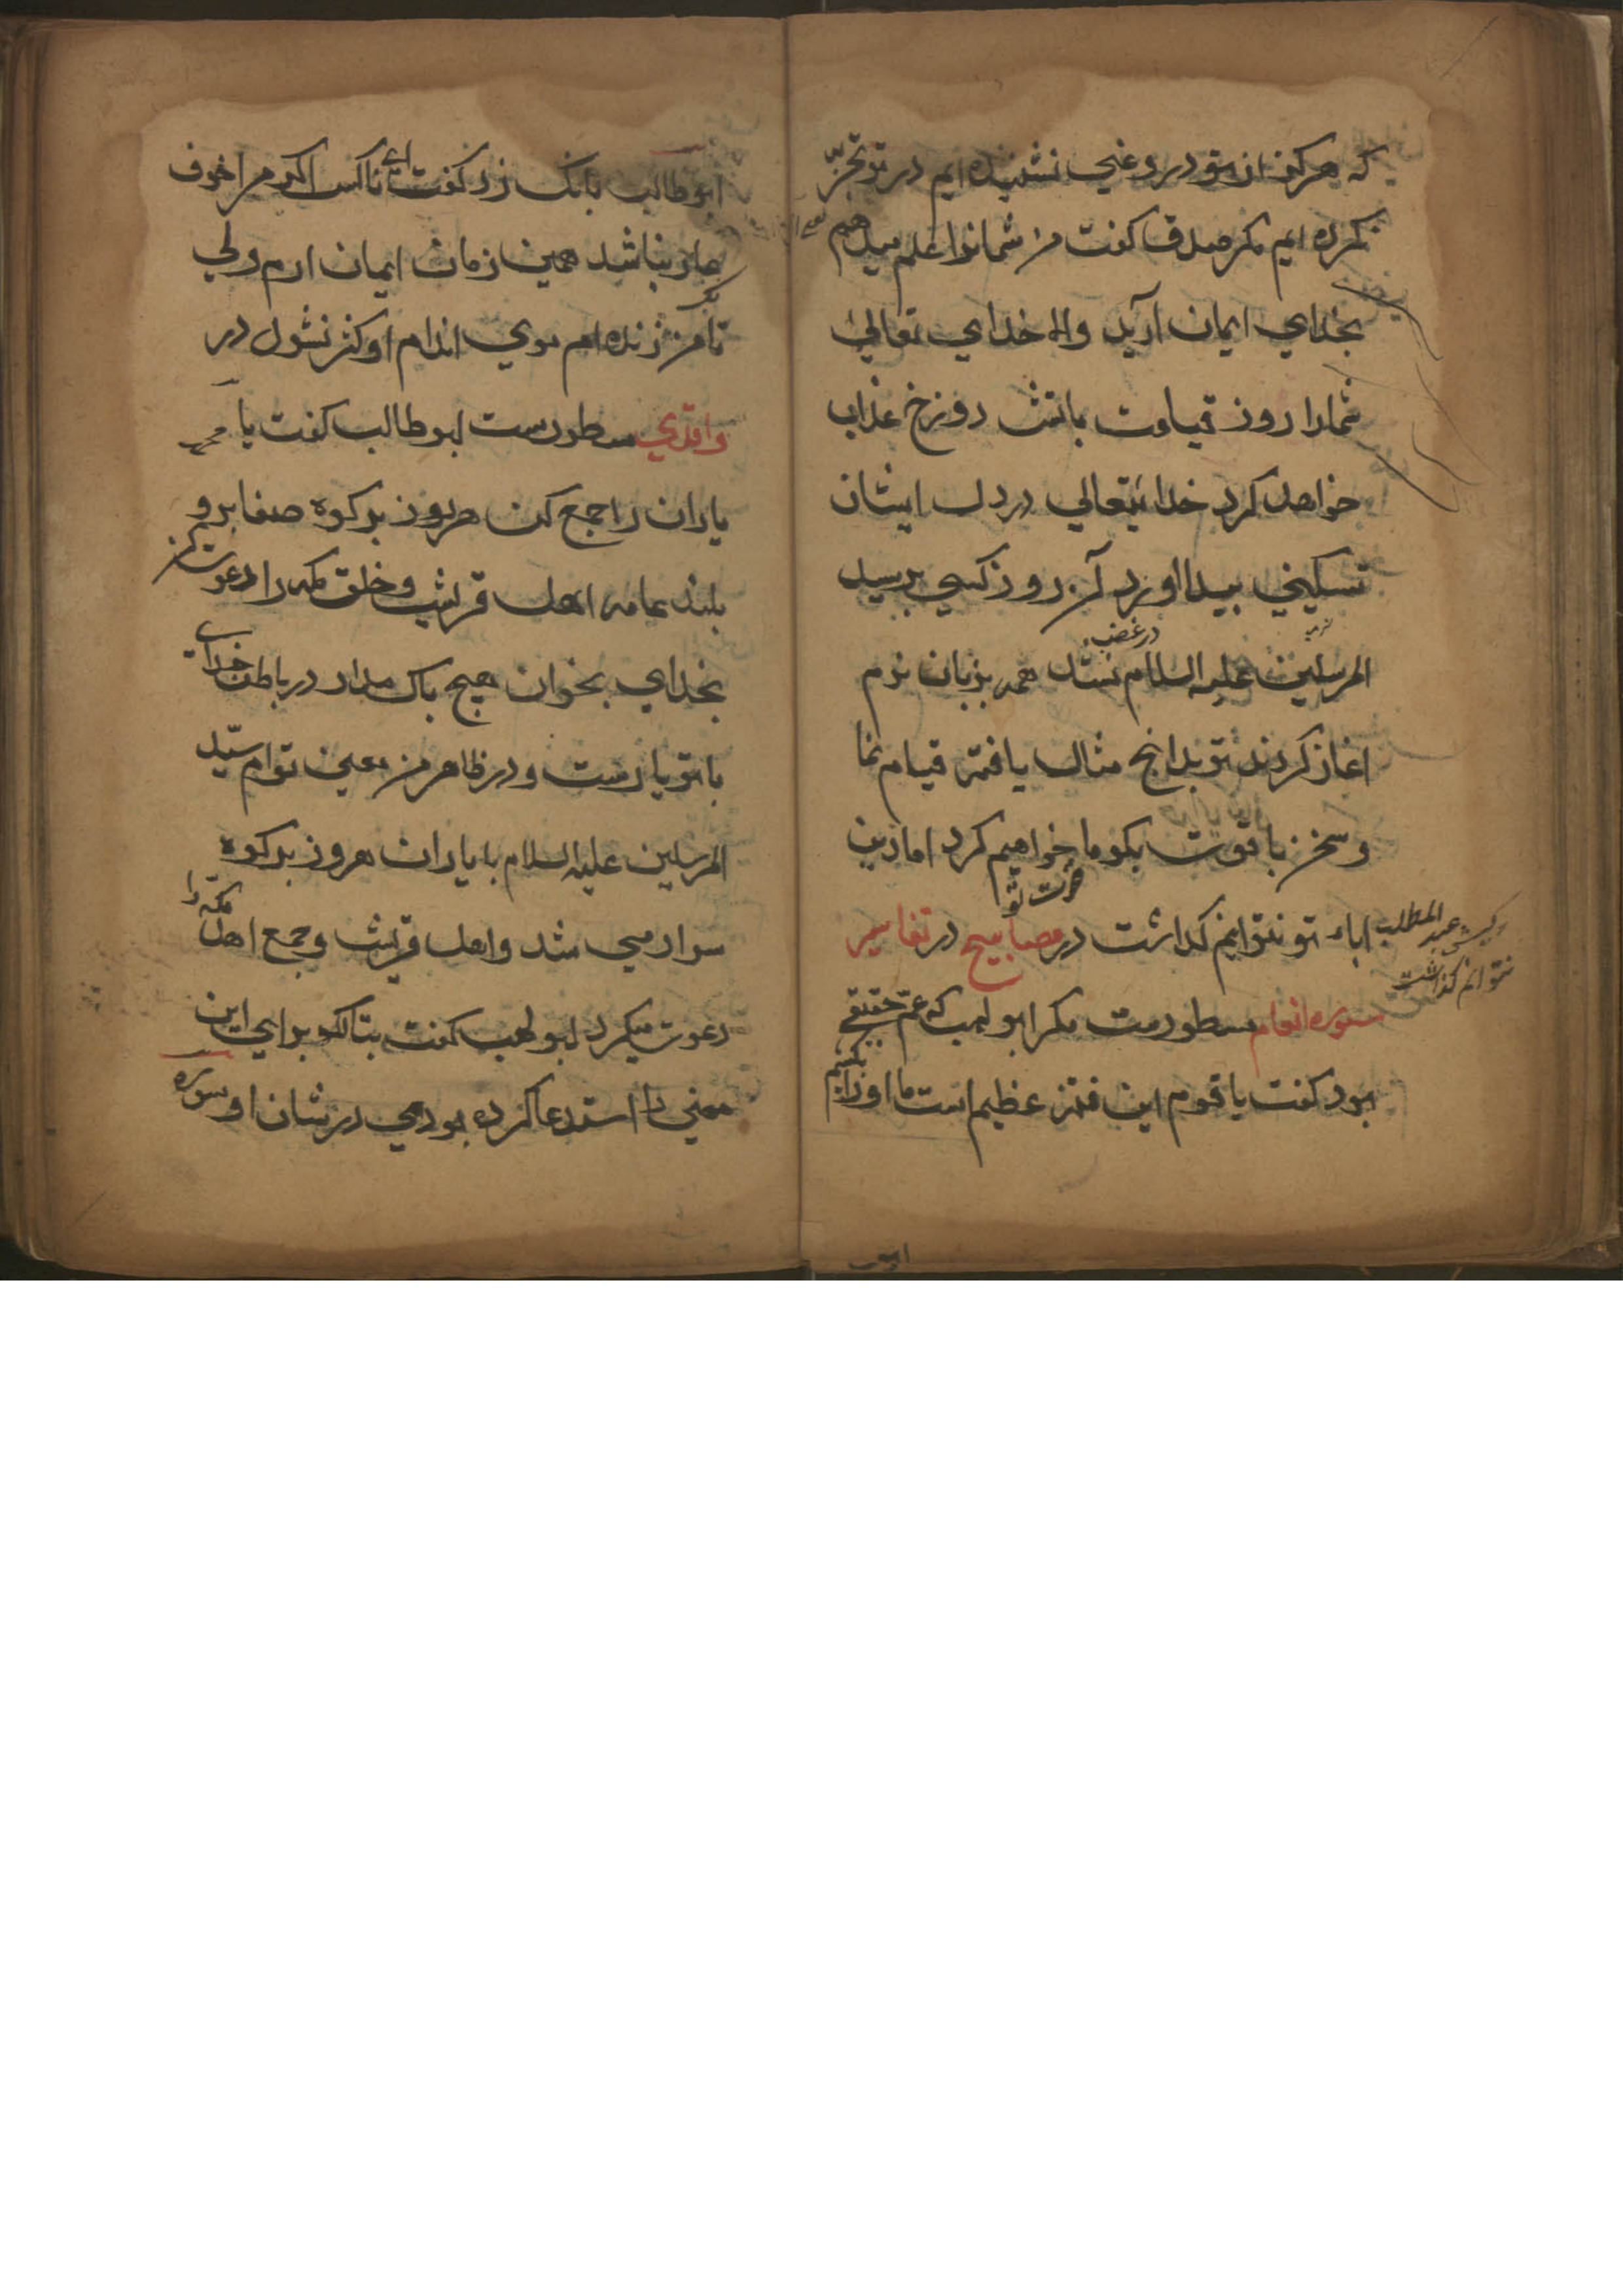 که هرکز از تو دروغی نشنیده ایم در تو تجربه
نکرده ایم مکر صدق کفت من شمانرا علم میدهم
بخدای ایمان آرید والا خدای تعالی
شمارا روز قیامت باتش دوزخ عذاب
خواهد کرد خدایتعالی در دل ایشان
تسکینی پیدا اورد آن روز کسی بر سید
المرسلین علیه السلام در غضب نشد همه بزبان نرم
اغاز کردند تو بدانچ مثال یافته قیام نما
وسخن با قوت بکو ما خواهیم کرد اما دین
اباء تو نتوانیم کذاشت در مصابیح در تفاسیر
وکیش عبد المطلب
نتوانم کذاشت
سوره انعام مسطورست مکر ابو لهب که عم حقیقی
بود کفت یا قوم این فتنه عظیم است ما اورا بکشیم
ابو
ابو طالب بانک زد کفت ای ناکس اکر مرا خوف
عار نباشد همین زمان ایمان ارم ولی
تا من زنده ام موی اندام او کژ نشود در
واقدی مسطورست ابو طالب کفت یا محمد
یاران را جمع کن هر روز بر کوه صفا برو
بلند عامه اهل قریش وخلق مکه را دعوت کن
بخدای بخوان هیچ باک مدار در باطن خدای
با تو یارست ودر ظاهر من معین توام سید
المرسلین علیه السلام با یاران هر روز بر کوه
سوار می شد واهل قریش وجمع اهل مکه را
دعوت میکرد ابو لهب کفت تبا لک برای این
معنی را استدعا کرده بودی در شان او سوره